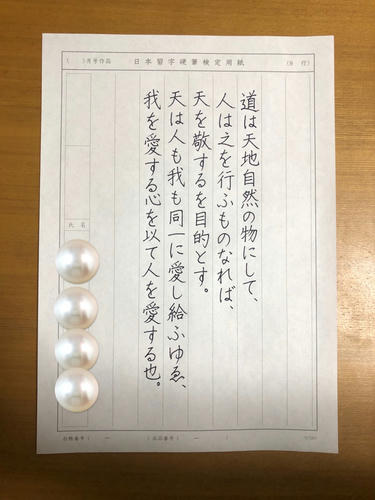 ( )月号作品 日本習字硬筆検定用紙 (B 行)
道は天地自然の物にして、
人は之を行ふものなれば、
天を敬するを目的とす。
天は人も我も同一に愛し給ふゆゑ、
我を愛する心を以て人を愛する也。
氏名